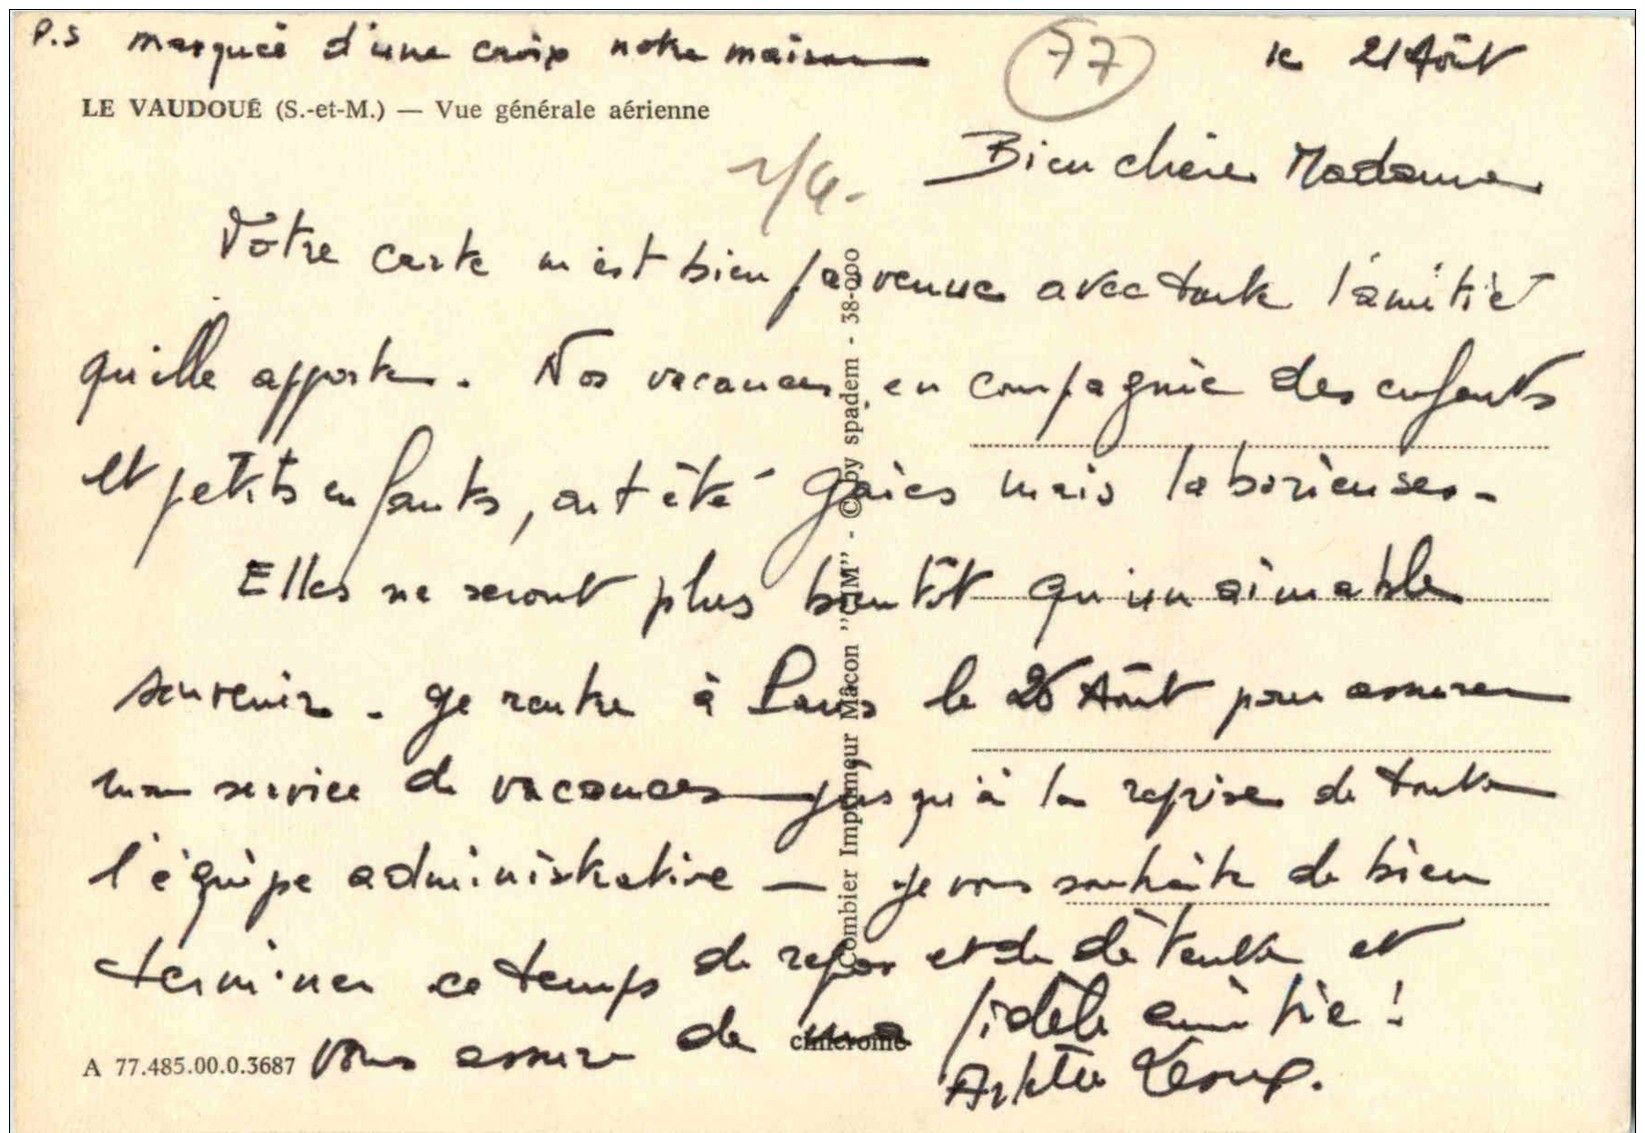 P.S marquée d'une croix notre maison
77
le 21 Août
LE VAUDOUÉ (S.-et-M.) — Vue générale aérienne
Bien chère Madame
Votre carte m'est bien parvenue avec toute l'amitié
qu'elle apporte. Nos vacances, en compagnie des enfants
et petits enfants, ont été gaies mais laborieuses -
Elles ne seront plus bientôt qu'un aimable
souvenir - Je rentre à Paris le 26 Août pour assurer
mon service de vacances jusqu'à la reprise de toute
l'équipe administrative — Je vous souhaite de bien
terminer ce temps de repos et de détente et
vous assure de ma fidèle amitié !
A 77.485.00.0.3687
cimcrome
Combier Imprimeur Mâcon "CIM" - © by spadem - 38-000